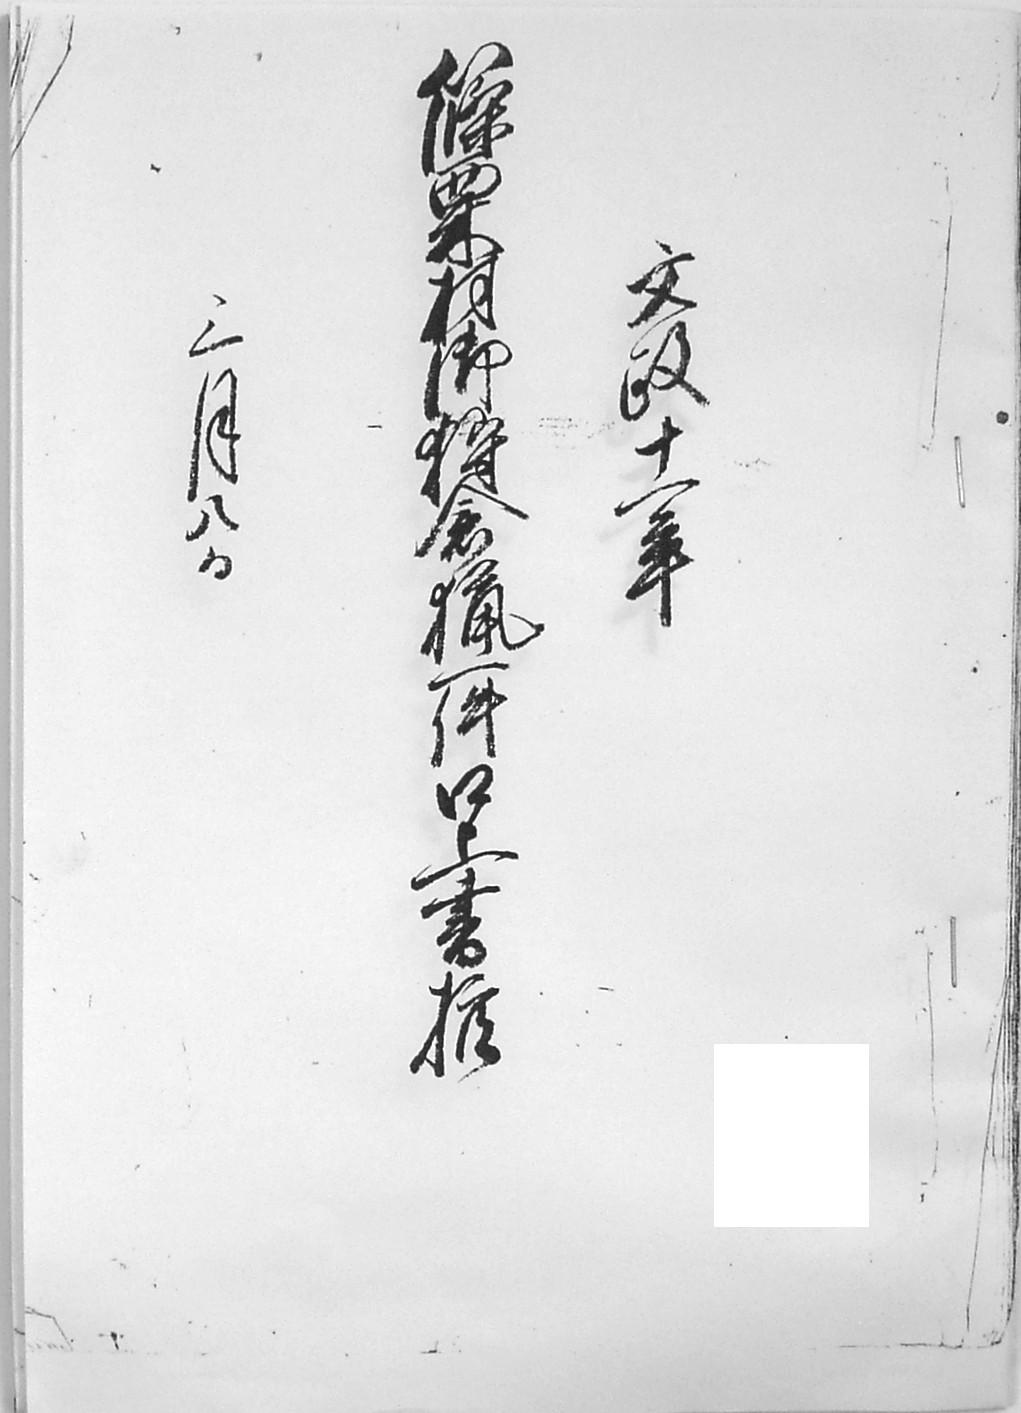 文政十一年
篠栗村御狩倉猟一件口上書控
三月八日